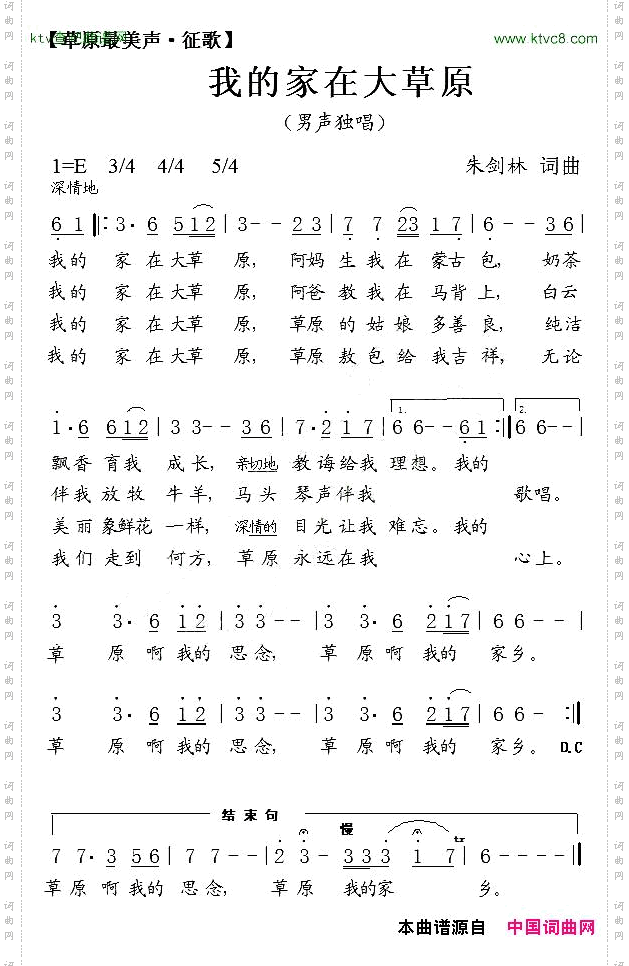 【草原最美声·征歌】
www.ktvc8.com
我的家在大草原
（男声独唱）
1=E 3/4 4/4 5/4 朱剑林 词曲
深情地
6 1 ‖: 3· 6 5 1 2 | 3 - - 2 3 | 7 7 2 3 1 7 | 6 - - 3 6 |
我的 家 在大草 原, 阿妈 生 我 在 蒙古 包, 奶茶
我的 家 在大草 原, 阿爸 教 我 在 马背 上, 白云
我的 家 在大草 原, 草原 的 姑 娘 多善 良, 纯洁
我的 家 在大草 原, 草原 敖 包 给 我吉 祥, 无论
1· 6 6 1 2 | 3 3 - - 3 6 | 7· 2 1 7 | 1. 6 6 - - 6 1 :‖ 2. 6 6 - - |
飘香 育我 成长, 亲切地 教 诲给我 理想。我的
伴我 放牧 牛羊, 马头 琴声伴我 歌唱。
美丽 象鲜花 一样, 深情的 目光让我 难忘。我的
我们 走到 何方, 草原 永远在我 心上。
3 3· 6 1 2 | 3 3 - - | 3 3· 6 2 1 7 | 6 - - |
草 原 啊 我的 思念, 草 原 啊 我的 家乡。
3 3· 6 1 2 | 3 3 - - | 3 3· 6 2 1 7 | 6 6 - :‖
草 原 啊 我的 思念, 草 原 啊 我的 家乡。 D.C
结束句
慢
7 7· 3 5 6 | 7 7 - - | 2 3 - 3 3 3 1 7 | 6 - - - - ‖
草原啊我的 思念, 草原 我的家 乡。
本曲谱源自 中国词曲网
词曲网